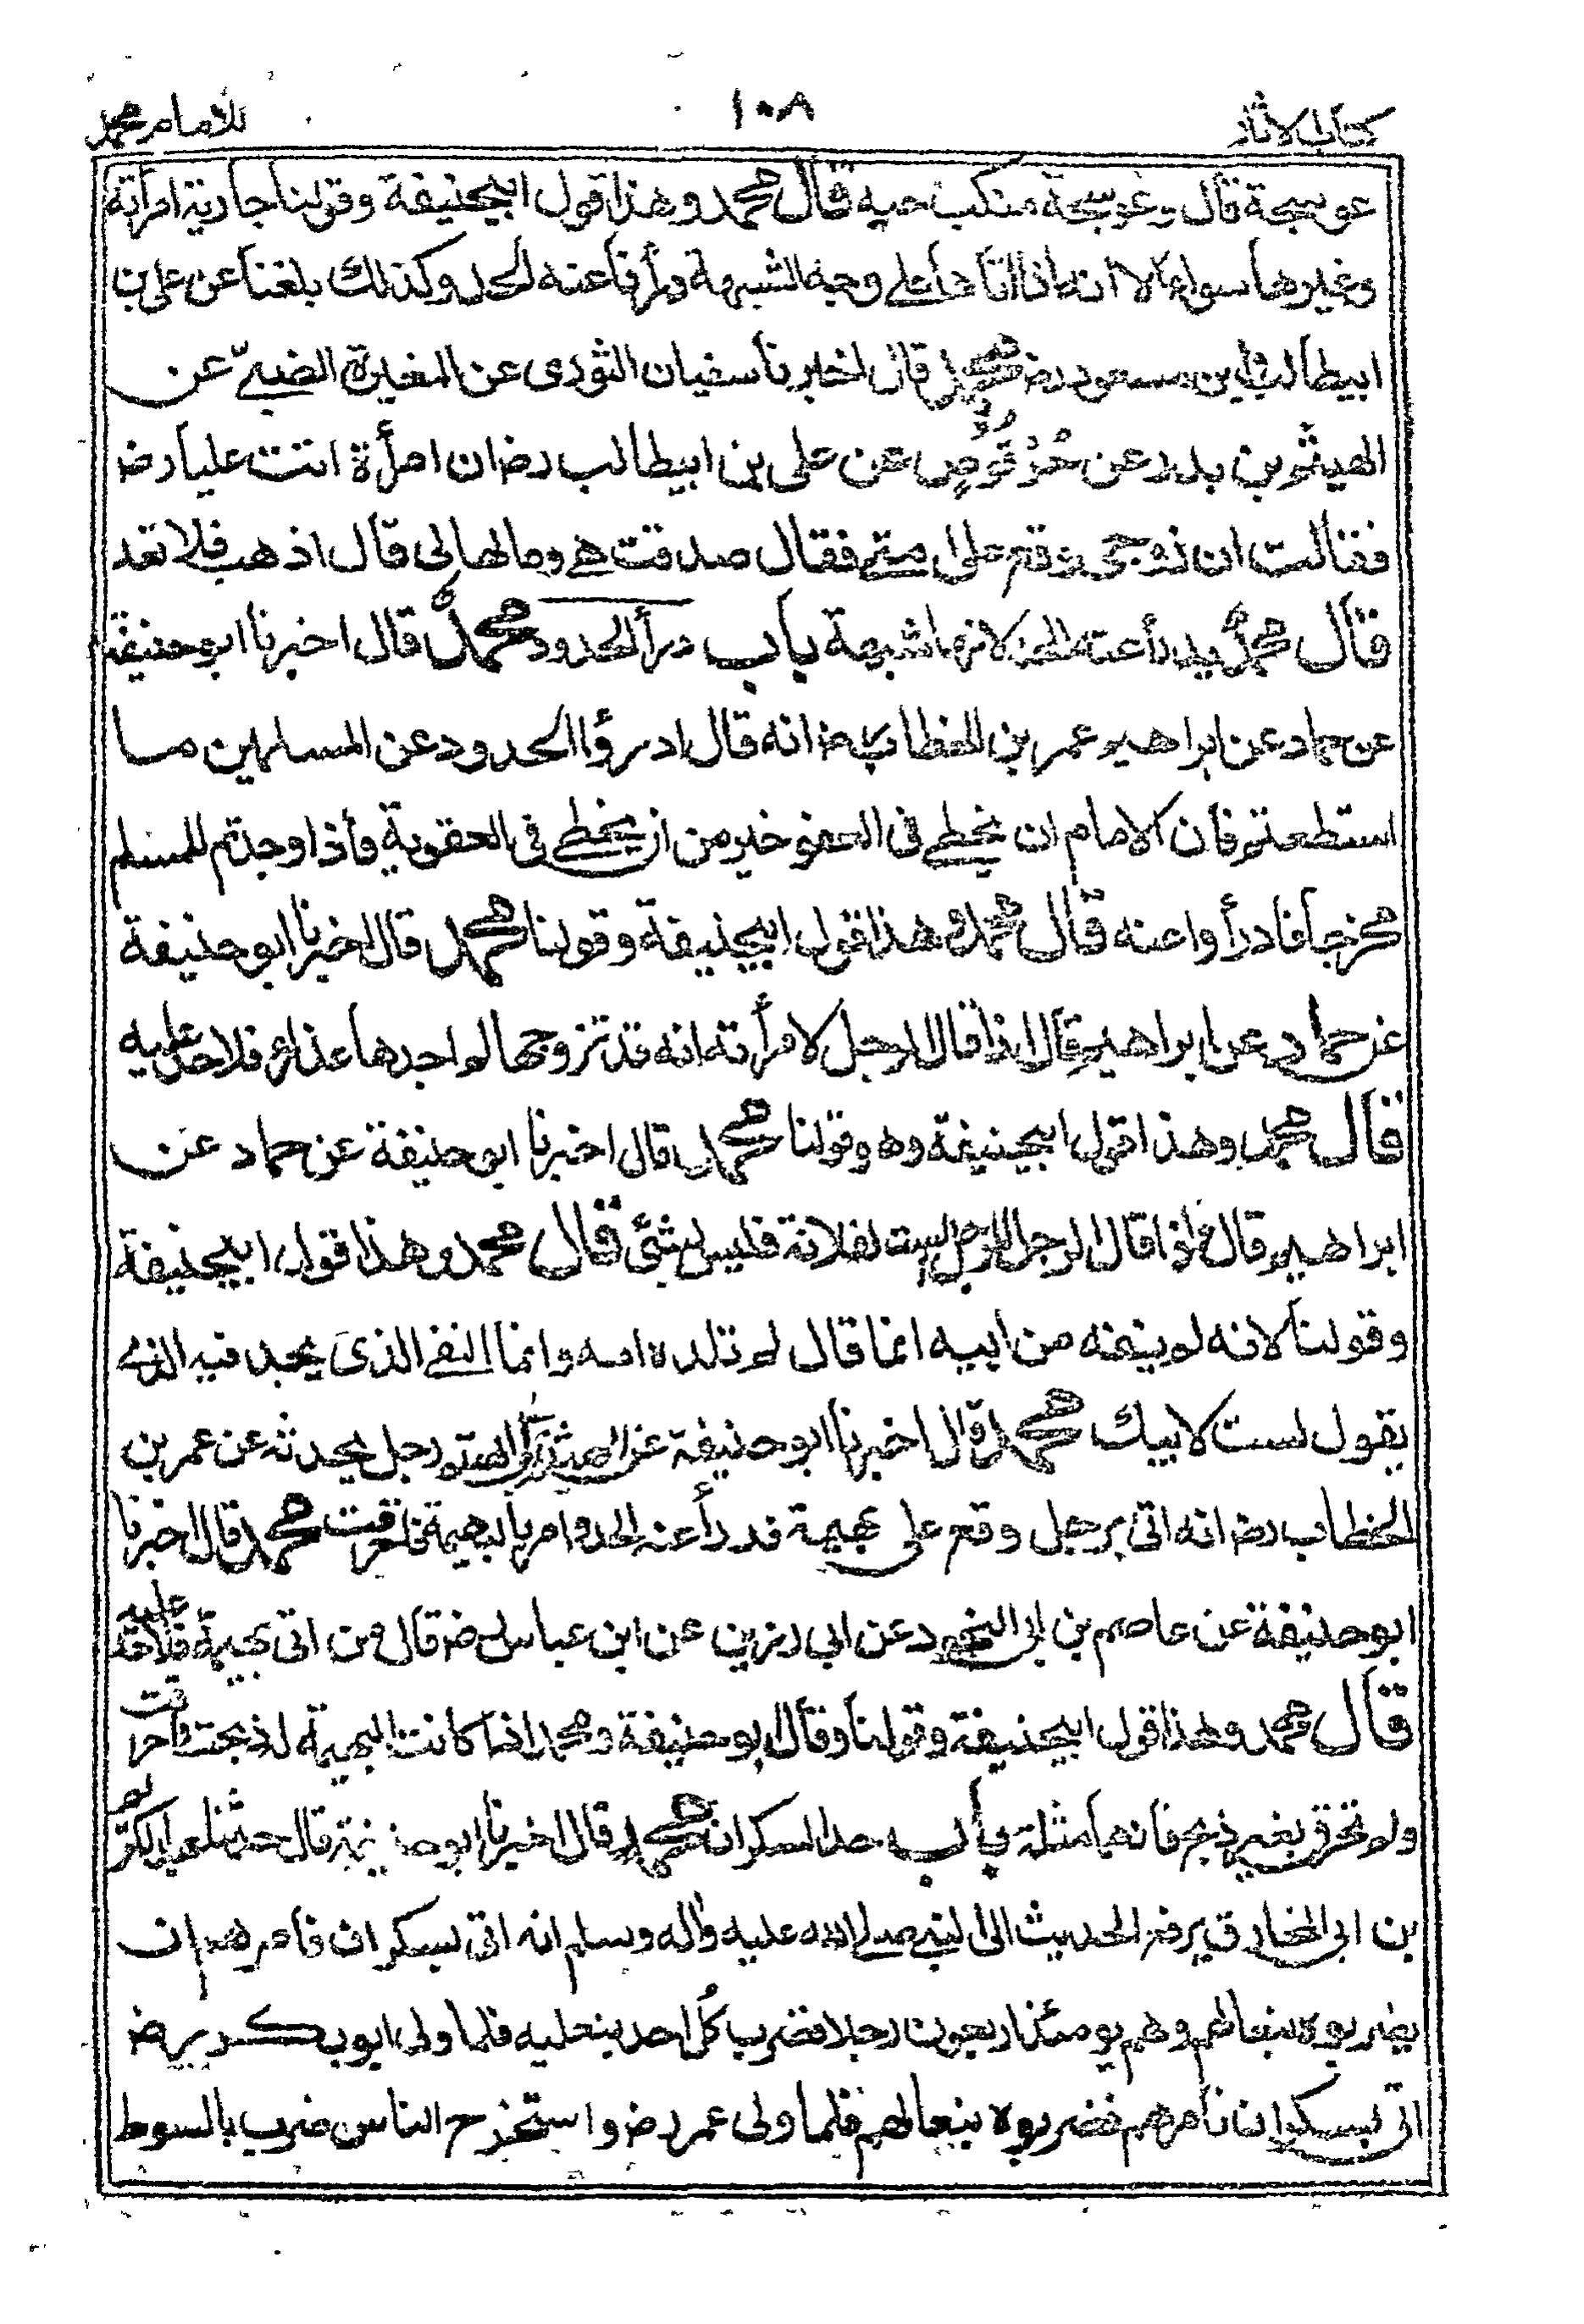 كتاب الاثار ١٠٨ للامام محمد
عوسجة قال وعوسجة منكب حيه قال محمد وهذا قول ابيحنيفة وقولنا جارية امرأته
وغيرها سواء الا انه اذا اتاها على وجه الشبهة درأنا عنه الحد وكذلك بلغنا عن على بن
ابيطالب وابن مسعود رض محمد قال اخبرنا سفيان الثورى عن المغيرة الضبى عن
الهيثم بن بدر عن حُرْقُوصٍ عن على بن ابيطالب رض ان امرأة اتت عليا رض
فقالت ان زوجى وقع على امتى فقال صدقت هى ومالها لى قال اذهب فلا تعد
قال محمد يدرأ عنه الحد لانها شبهة باب درأ الحدود محمدٌ قال اخبرنا ابو حنيفة
عن حماد عن ابراهيم عمر بن الخطاب رض انه قال ادرؤا الحدود عن المسلمين ما
استطعتم فان الامام ان يخطى فى العفو خير من ان يخطى فى العقوبة فاذا وجدتم للمسلم
مخرجا فادرأوا عنه قال محمد وهذا قول ابيحنيفة وقولنا محمد قال اخبرنا ابو حنيفة
عن حماد عن ابراهيم قال اذا قال الرجل لامرأته انه قد تزوجها لم اجدها عذراء فلا حد عليه
قال محمد وهذا قول ابيحنيفة وهو قولنا محمد قال اخبرنا ابو حنيفة عن حماد عن
ابراهيم قال اذا قال الرجل للرجل لست لفلانة فليس بشئ قال محمد وهذا قول ابيحنيفة
وقولنا لانه لم ينفه من ابيه انما قال لم تلده امه وانما النفى الذى يحد فيه الذى
يقول لست لابيك محمد قال اخبرنا ابو حنيفة عن رجل يحدثه عن عمر بن
الخطاب رض انه اتى برجل وقع على بهيمة فدرأ عنه الحد وامر بالبهيمة فاحرقت محمد قال اخبرنا
ابو حنيفة عن عاصم بن ابى النجود عن ابى رزين عن ابن عباس رض قال من اتى بهيمة فلا حد عليه
قال محمد وهذا قول ابيحنيفة وقولنا وقال ابو حنيفة ومحمد اذا كانت البهيمة له ذبحت واحرقت
ولم تحرق بغير ذبح فانها مثلة باب حد السكران محمد قال اخبرنا ابو حنيفة قال حدثنا عبد الكريم
بن ابى المخارق يرفع الحديث الى النبى صلى الله عليه واله وسلم انه اتى بسكران فامرهم ان
يضربوه بنعالهم وهم يومئذ اربعون رجلا فضرب كل احد بنعليه فلما ولى ابو بكر رض
اتى بسكران فامرهم فضربوه بنعالهم فلما ولى عمر رض واستخرج الناس ضرب بالسوط